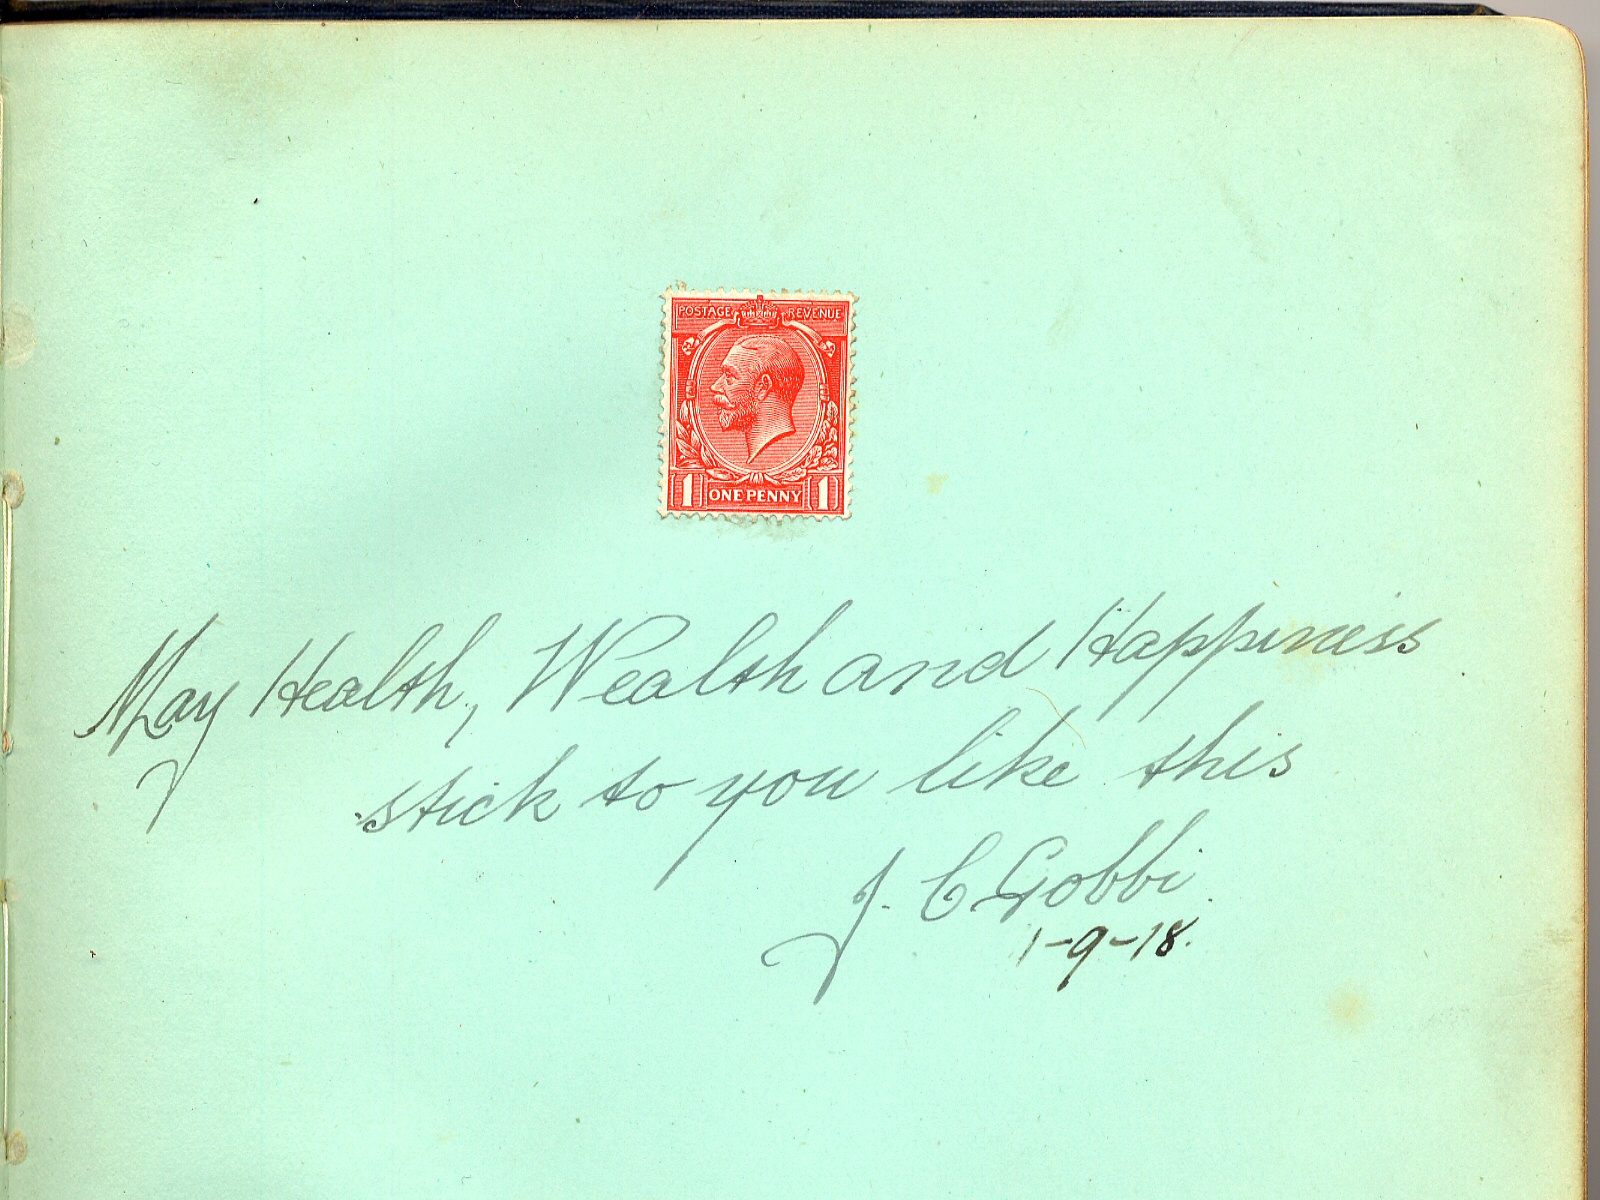 POSTAGE REVENUE
1 ONE PENNY 1
May Health, Wealth and Happiness
stick to you like this
J. C Gobbi.
1-9-18.